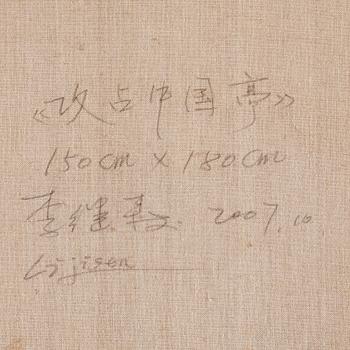 《攻占中国亭》
150cm x 180cm
李继 2007.10
Lijisen